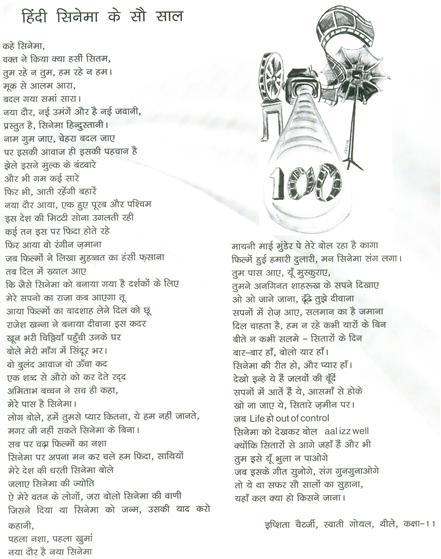 हिंदी सिनेमा के सौ साल
कहे सिनेमा,
वक्त ने किया क्या हसीं सितम,
तुम रहे न तुम, हम रहे न हम।
मूक से आलम आरा,
बदल गया समां सारा।
नया दौर, नई उमंगें और है नई जवानी,
प्रस्तुत है, सिनेमा हिन्दुस्तानी।
नाम गुम जाए, चेहरा बदल जाए
पर इसकी आवाज ही इसकी पहचान है
झेले इसने मुल्क के बंटवारे
और भी गम कई सारे
फिर भी, आती रहेंगी बहारें
नया दौर आया, एक हुए पूरब और पश्चिम
इस देश की मिटटी सोना उगलती रही
कई तन इस पर फिदा होते रहे
फिर आया वो रंगीन ज़माना
जब फिल्मों ने लिखा मुहब्बत का हंसीं फसाना
तब दिल में ख्याल आए
कि जैसे सिनेमा को बनाया गया है दर्शकों के लिए
मेरे सपनो का राजा कब आएगा तू
आया फिल्मों का बादशाह लेने दिल को छू
राजेश खन्ना ने बनाया दीवाना इस कदर
खून भरी चिठ्ठियाँ पहुँची उनके घर
बोले मेरी माँग में सिंदूर भर।
वो बुलंद आवाज वो ऊँचा कद
एक शब्द से औरो को कर देते रदद
अमिताभ बच्चन ने सच ही कहा,
मेरे पास है सिनेमा।
लोग बोले, हमें तुमसे प्यार कितना, ये हम नहीं जानते,
मगर जी नहीं सकते सिनेमा के बिना।
सब पर चढ़ा फिल्मों का नशा
सिनेमा पर अपना मन कर चले हम फिदा, साथियों
मेरे देश की धरती सिनेमा बोले
जलाए सिनेमा की ज्योति
ऐ मेरे वतन के लोगों, जरा बोलो सिनेमा की वाणी
जिसने दिया था सिनेमा को जन्म, उसकी याद करो
कहानी,
पहला नशा, पहला खुमां
नया दौर है नया सिनेमा
100
मायनी माई मुंडेर पे तेरे बोल रहा है कागा
फिल्में हुई हमारी दुलारी, मन सिनेमा संग लगा।
तुम पास आए, यूँ मुस्कुराए,
तुमने अनगिनत शाहरूख के सपने दिखाए
ओ ओ जाने जाना, ढूंढे तुझे दीवाना
सपनों में रोज़ आए, सलमान का है जमाना
दिल चाहता है, हम न रहे कभी यारों के बिन
बीते न कभी सलमे – सितारों के दिन
बार–बार हाँ, बोलो यार हाँ।
सिनेमा की रीत हो, और प्यार हाँ।
देखो इन्हे ये हैं जलवों की बूँदें
सपनों में आतें हैं ये, आसमाँ से होके
खो ना जाए ये, सितारे ज़मीन पर।
जब Life हो out of control
सिनेमा को देखकर बोल aal izz well
क्योंकि सितारों से आगे जहाँ हैं और भी
तुम इसे यूँ भुला न पाओगे
जब इसके गीत सुनोगे, संग गुनगुनाओगे
तो ये था सफर सौ सालों का सुहाना,
यहाँ कल क्या हो किसने जाना।
इप्शिता चैटर्जी, स्वाती गोयल, थीले, कक्षा–11